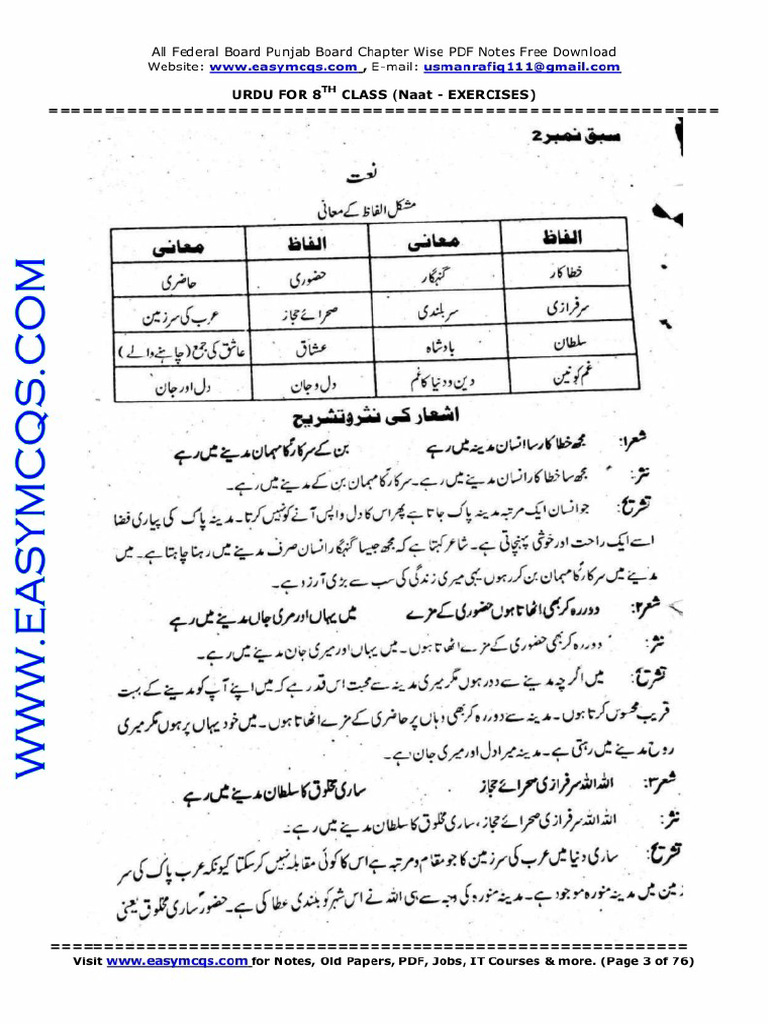 All Federal Board Punjab Board Chapter Wise PDF Notes Free Download
Website: www.easymcqs.com , E-mail: usmanrafiq111@gmail.com
URDU FOR 8TH CLASS (Naat - EXERCISES)
سبق نمبر 2
نعت
مشکل الفاظ کے معانی
الفاظ معانی الفاظ معانی
خطا کار گنہگار حضوری حاضری
سرفرازی سربلندی صحرائے حجاز عرب کی سرزمین
سلطان بادشاہ عشاق عاشق کی جمع (چاہنے والے)
غم کونین دین و دنیا کا غم دل و جان دل اور جان
اشعار کی نثر و تشریح
شعر ۱: مجھ خطا کار سا انسان مدینہ میں رہے بن کے سرکار کا مہمان مدینے میں رہے
نثر: مجھ سا خطا کار انسان مدینے میں رہے۔ سرکار کا مہمان بن کے مدینے میں رہے۔
تشریح: جو انسان ایک مرتبہ مدینہ پاک جاتا ہے پھر اس کا دل واپس آنے کو نہیں کرتا۔ مدینہ پاک کی پیاری فضا
اسے ایک راحت اور خوشی پہنچاتی ہے۔ شاعر کہتا ہے کہ مجھ جیسا گنہگار انسان صرف مدینے میں رہنا چاہتا ہے۔ میں
مدینے میں سرکار کا مہمان بن کر رہوں یہی میری زندگی کی سب سے بڑی آرزو ہے۔
شعر ۲: دور رہ کر بھی اٹھاتا ہوں حضوری کے مزے میں یہاں اور مری جاں مدینے میں رہے
نثر: دور رہ کر بھی حضوری کے مزے اٹھاتا ہوں۔ میں یہاں اور میری جان مدینے میں رہے۔
تشریح: میں اگرچہ مدینے سے دور ہوں مگر میری مدینہ سے محبت اس قدر ہے کہ میں اپنے آپ کو مدینے کے بہت
قریب محسوس کرتا ہوں۔ مدینہ سے دور رہ کر بھی وہاں پر حاضری کے مزے اٹھاتا ہوں۔ میں خود یہاں پر ہوں مگر میری
روح مدینے میں رہتی ہے۔ مدینہ میرا دل اور میری جان ہے۔
شعر ۳: اللہ اللہ سرفرازی صحرائے حجاز ساری مخلوق کا سلطان مدینے میں رہے
نثر: اللہ اللہ سرفرازی صحرائے حجاز، ساری مخلوق کا سلطان مدینے میں رہے۔
تشریح: ساری دنیا میں عرب کی سرزمین کا جو مقام و مرتبہ ہے اس کا کوئی مقابلہ نہیں کر سکتا کیونکہ عرب پاک کی سر
زمین میں مدینہ منورہ موجود ہے۔ مدینہ منورہ کی وجہ سے ہی اللہ نے اس شہر کو بلندی عطا کی ہے۔ حضورؐ ساری مخلوق یعنی
WWW.EASYMCQS.COM
Visit www.easymcqs.com for Notes, Old Papers, PDF, Jobs, IT Courses & more. (Page 3 of 76)